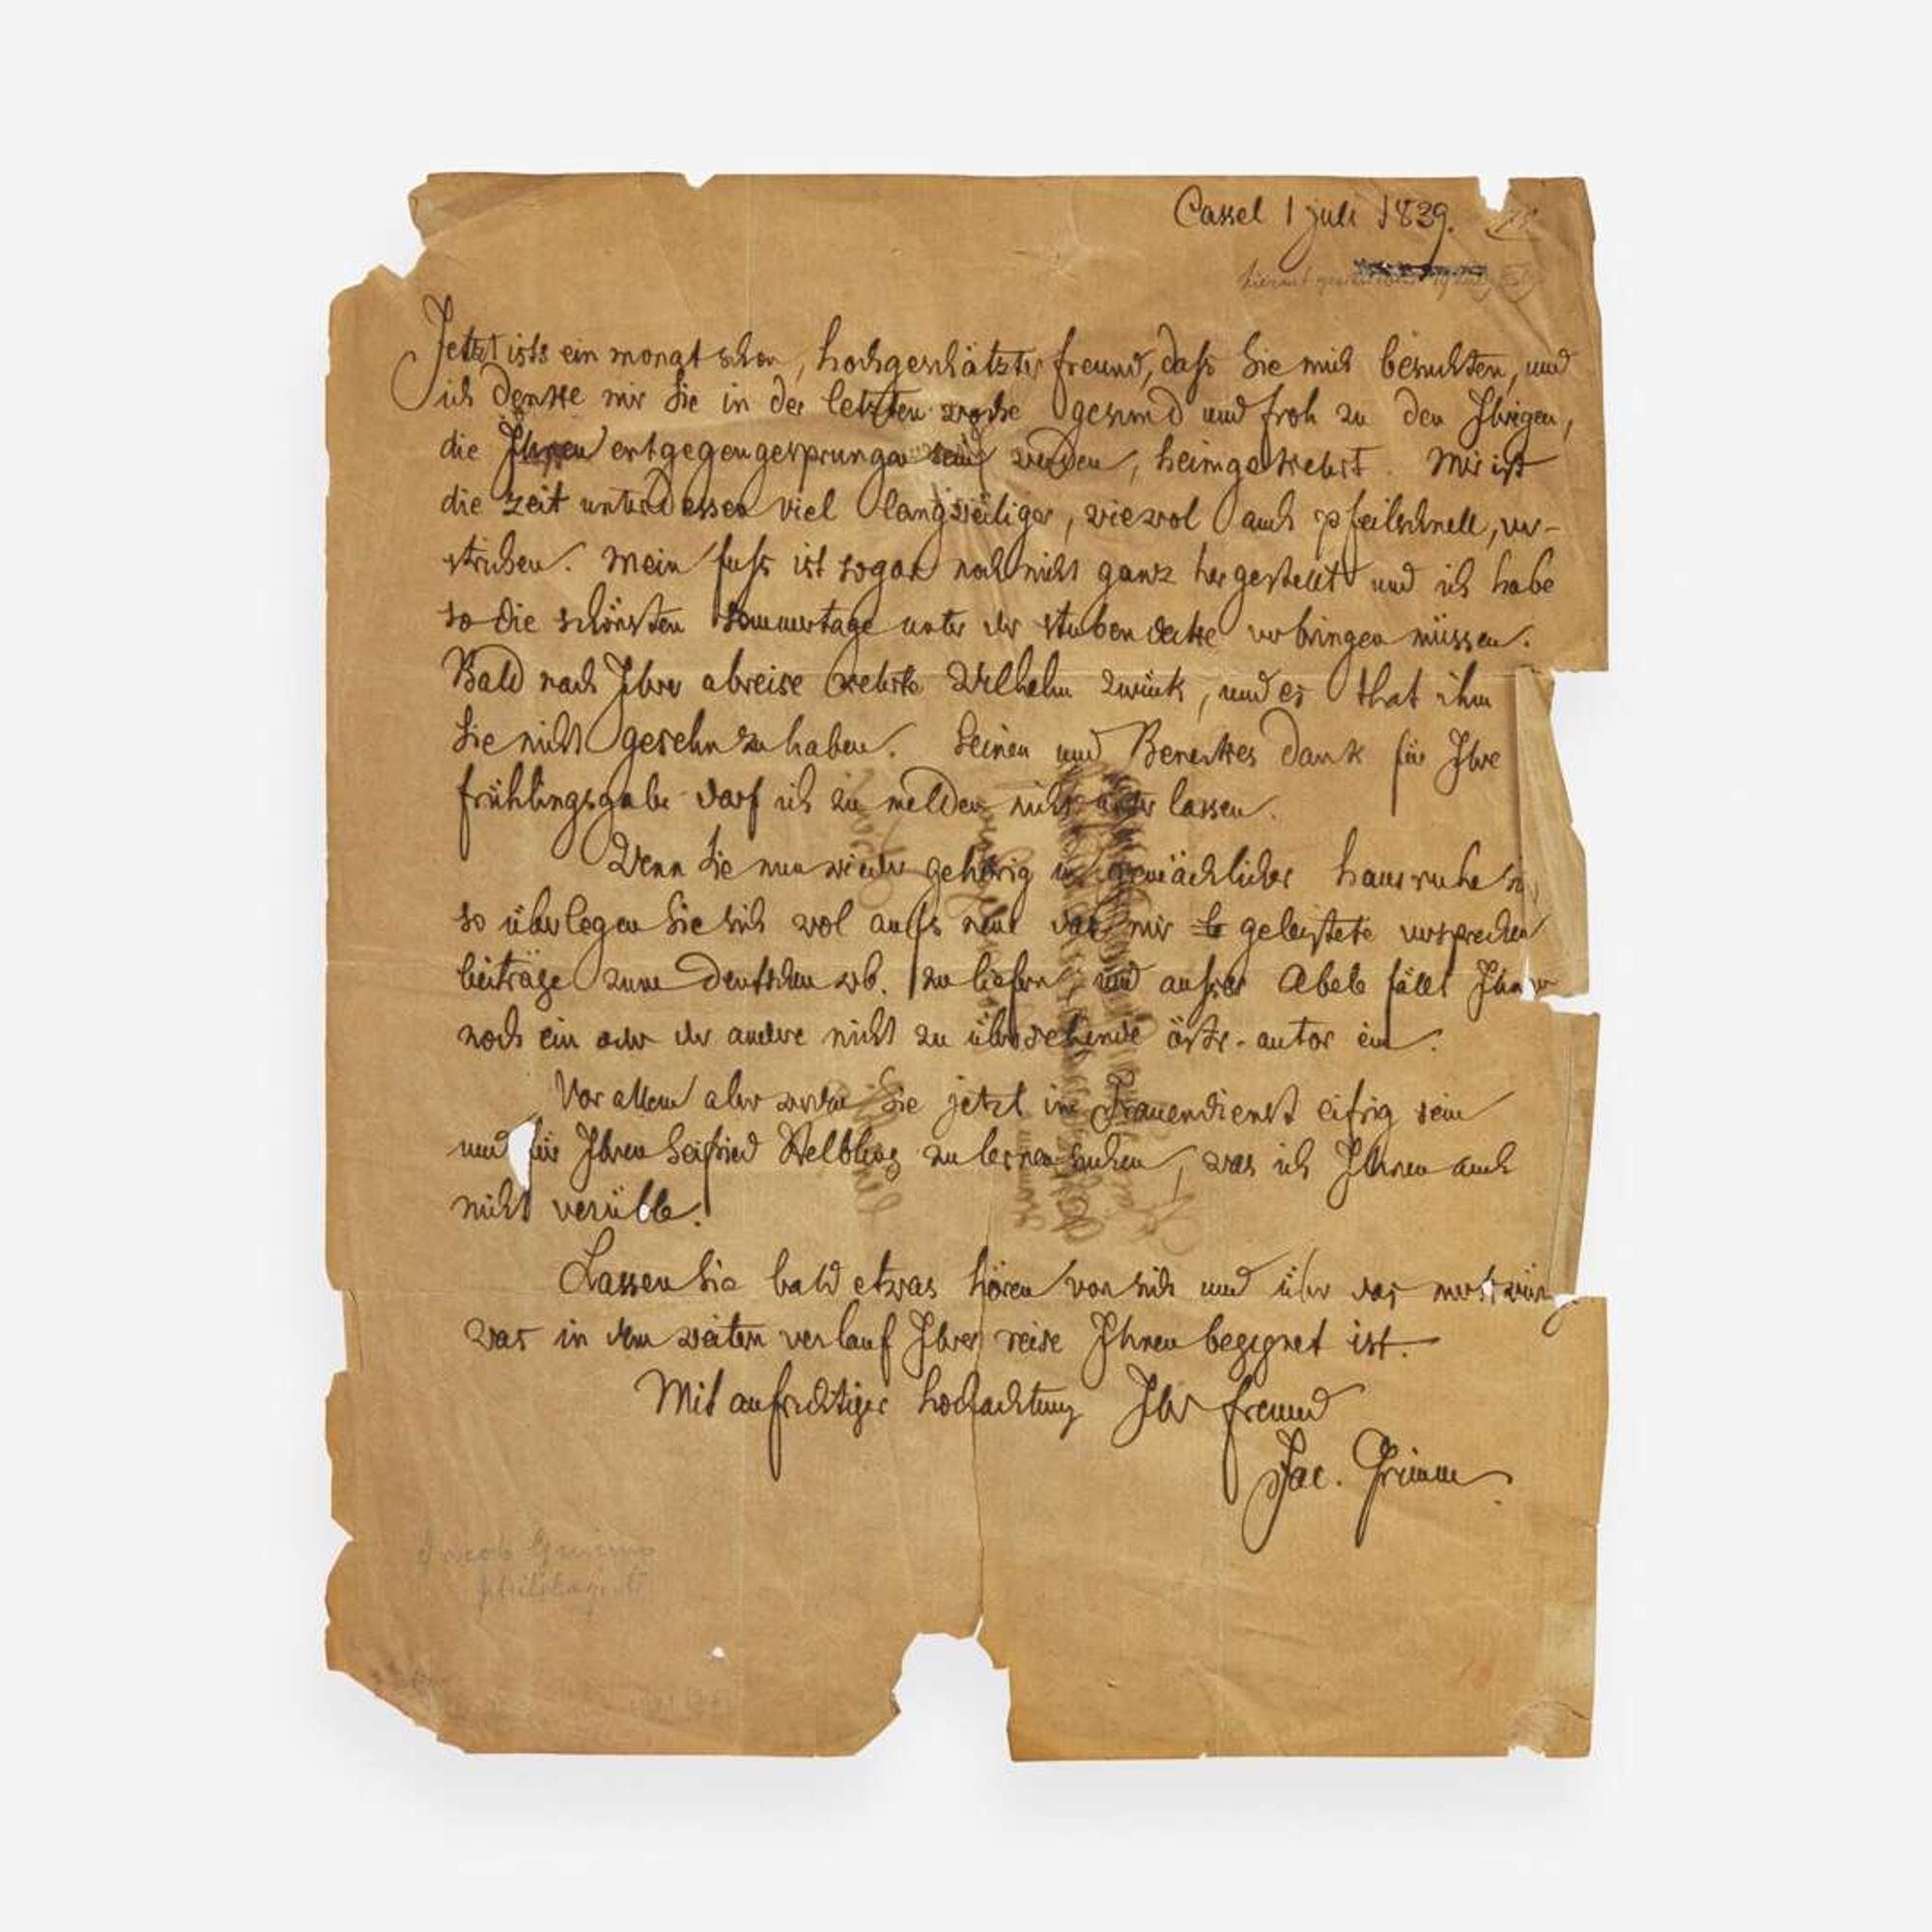 Cassel 1 juli 1839.
hierauf geantwortet 19 July
Jetzt ists ein monat schon, hochgeschätzter freund, dafs Sie mich besuchten, und
ich denke mir Sie in der letzten woche gesund und froh zu den Ihrigen,
die Ihnen entgegengesprungen sein werden, heimgekehrt. Mir ist
die zeit unterdessen viel langweiliger, wiewol auch pfeilschnell, ver-
strichen. Mein fufs ist sogar noch nicht ganz hergestellt und ich habe
so die schönsten sommertage unter der stubendecke verbringen müssen.
Bald nach Ihrer abreise kehrte Wilhelm zurück, und es that ihm
Sie nicht gesehn zu haben. Seinen und Beneckes dank für Ihre
frühlingsgabe darf ich zu melden nicht unterlassen.
Wenn Sie nun wieder gehörig in gemächlicher hausruhe
so überlegen Sie sich wol aufs neue das mir geleistete versprechen
beiträge zum deutschen wb. zu liefern und aufser Abele fällt Ihnen
noch ein oder der andere nicht zu übersehende östr. autor ein.
Vor allem aber werden Sie jetzt im Frauendienst eifrig sein
und für Ihren Seifried Helbling zu lernen suchen, was ich Ihnen auch
nicht verüble.
Lassen Sie bald etwas hören von sich und über das merkwür
was in dem weitern verlauf Ihrer reise Ihnen begegnet ist.
Mit aufrichtiger hochachtung Ihr freund
Jac. Grimm.
Jacob Grimm
philolog